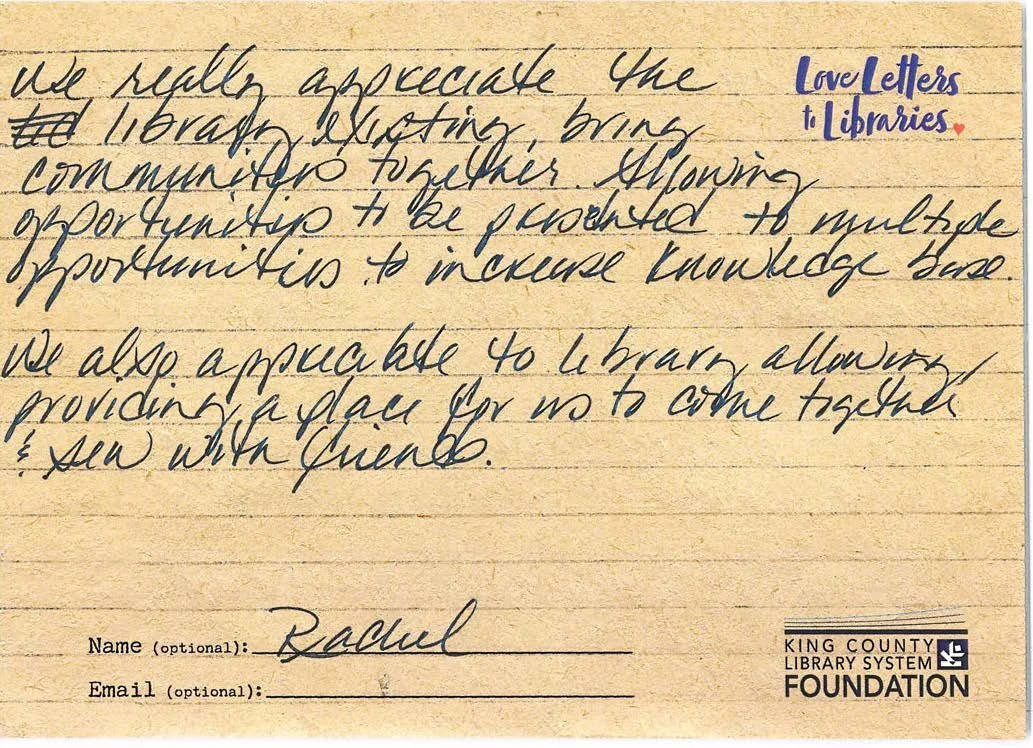 We really appreciate the
library existing, bring
communities together. Allowing
opportunities to be presented to multiple
opportunities to increase knowledge base.
We also appreciate to library allowing,
providing a place for us to come together
& sew with friends.
Love Letters
to Libraries.
Name (optional): Rachel
Email (optional):
KING COUNTY
LIBRARY SYSTEM
FOUNDATION